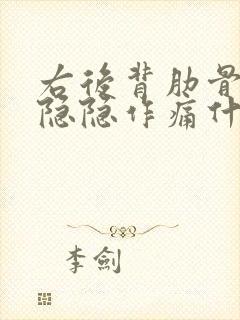 右後背肋骨
隐隐作痛什
李劍